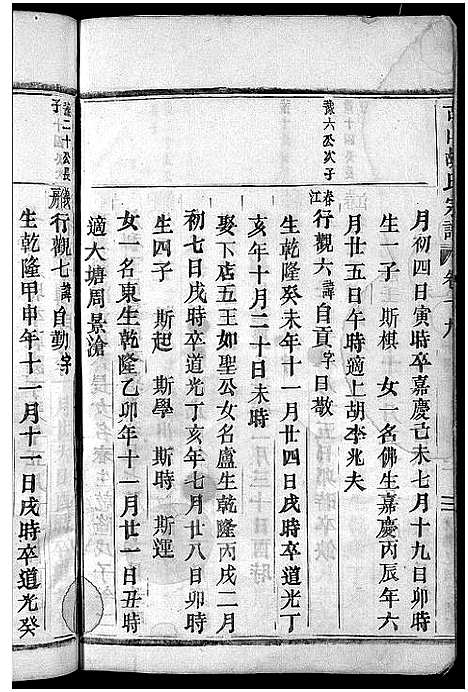 胡氏宗譜 卷之九
月初四日寅時卒嘉慶己未七月十九日卯時
生一子 斯棋 女一名佛生嘉慶丙辰年六
月廿五日午時適上胡李兆夫
豫六公次子
春江行觀六諱自貢字日敬
生乾隆癸未年十一月廿四日戌時卒道光丁
亥年十月二十日未時
娶下店五王如聖公女名盧生乾隆丙戌二月
初七日戌時卒道光丁亥年七月廿八日卯時
生四子 斯起 斯學 斯時 斯運
女一名東生乾隆乙卯年十一月廿一日丑時
適大塘周景滄
二十公長子
行觀七諱自勤字
生乾隆甲申年十一月十一日戌時卒道光癸